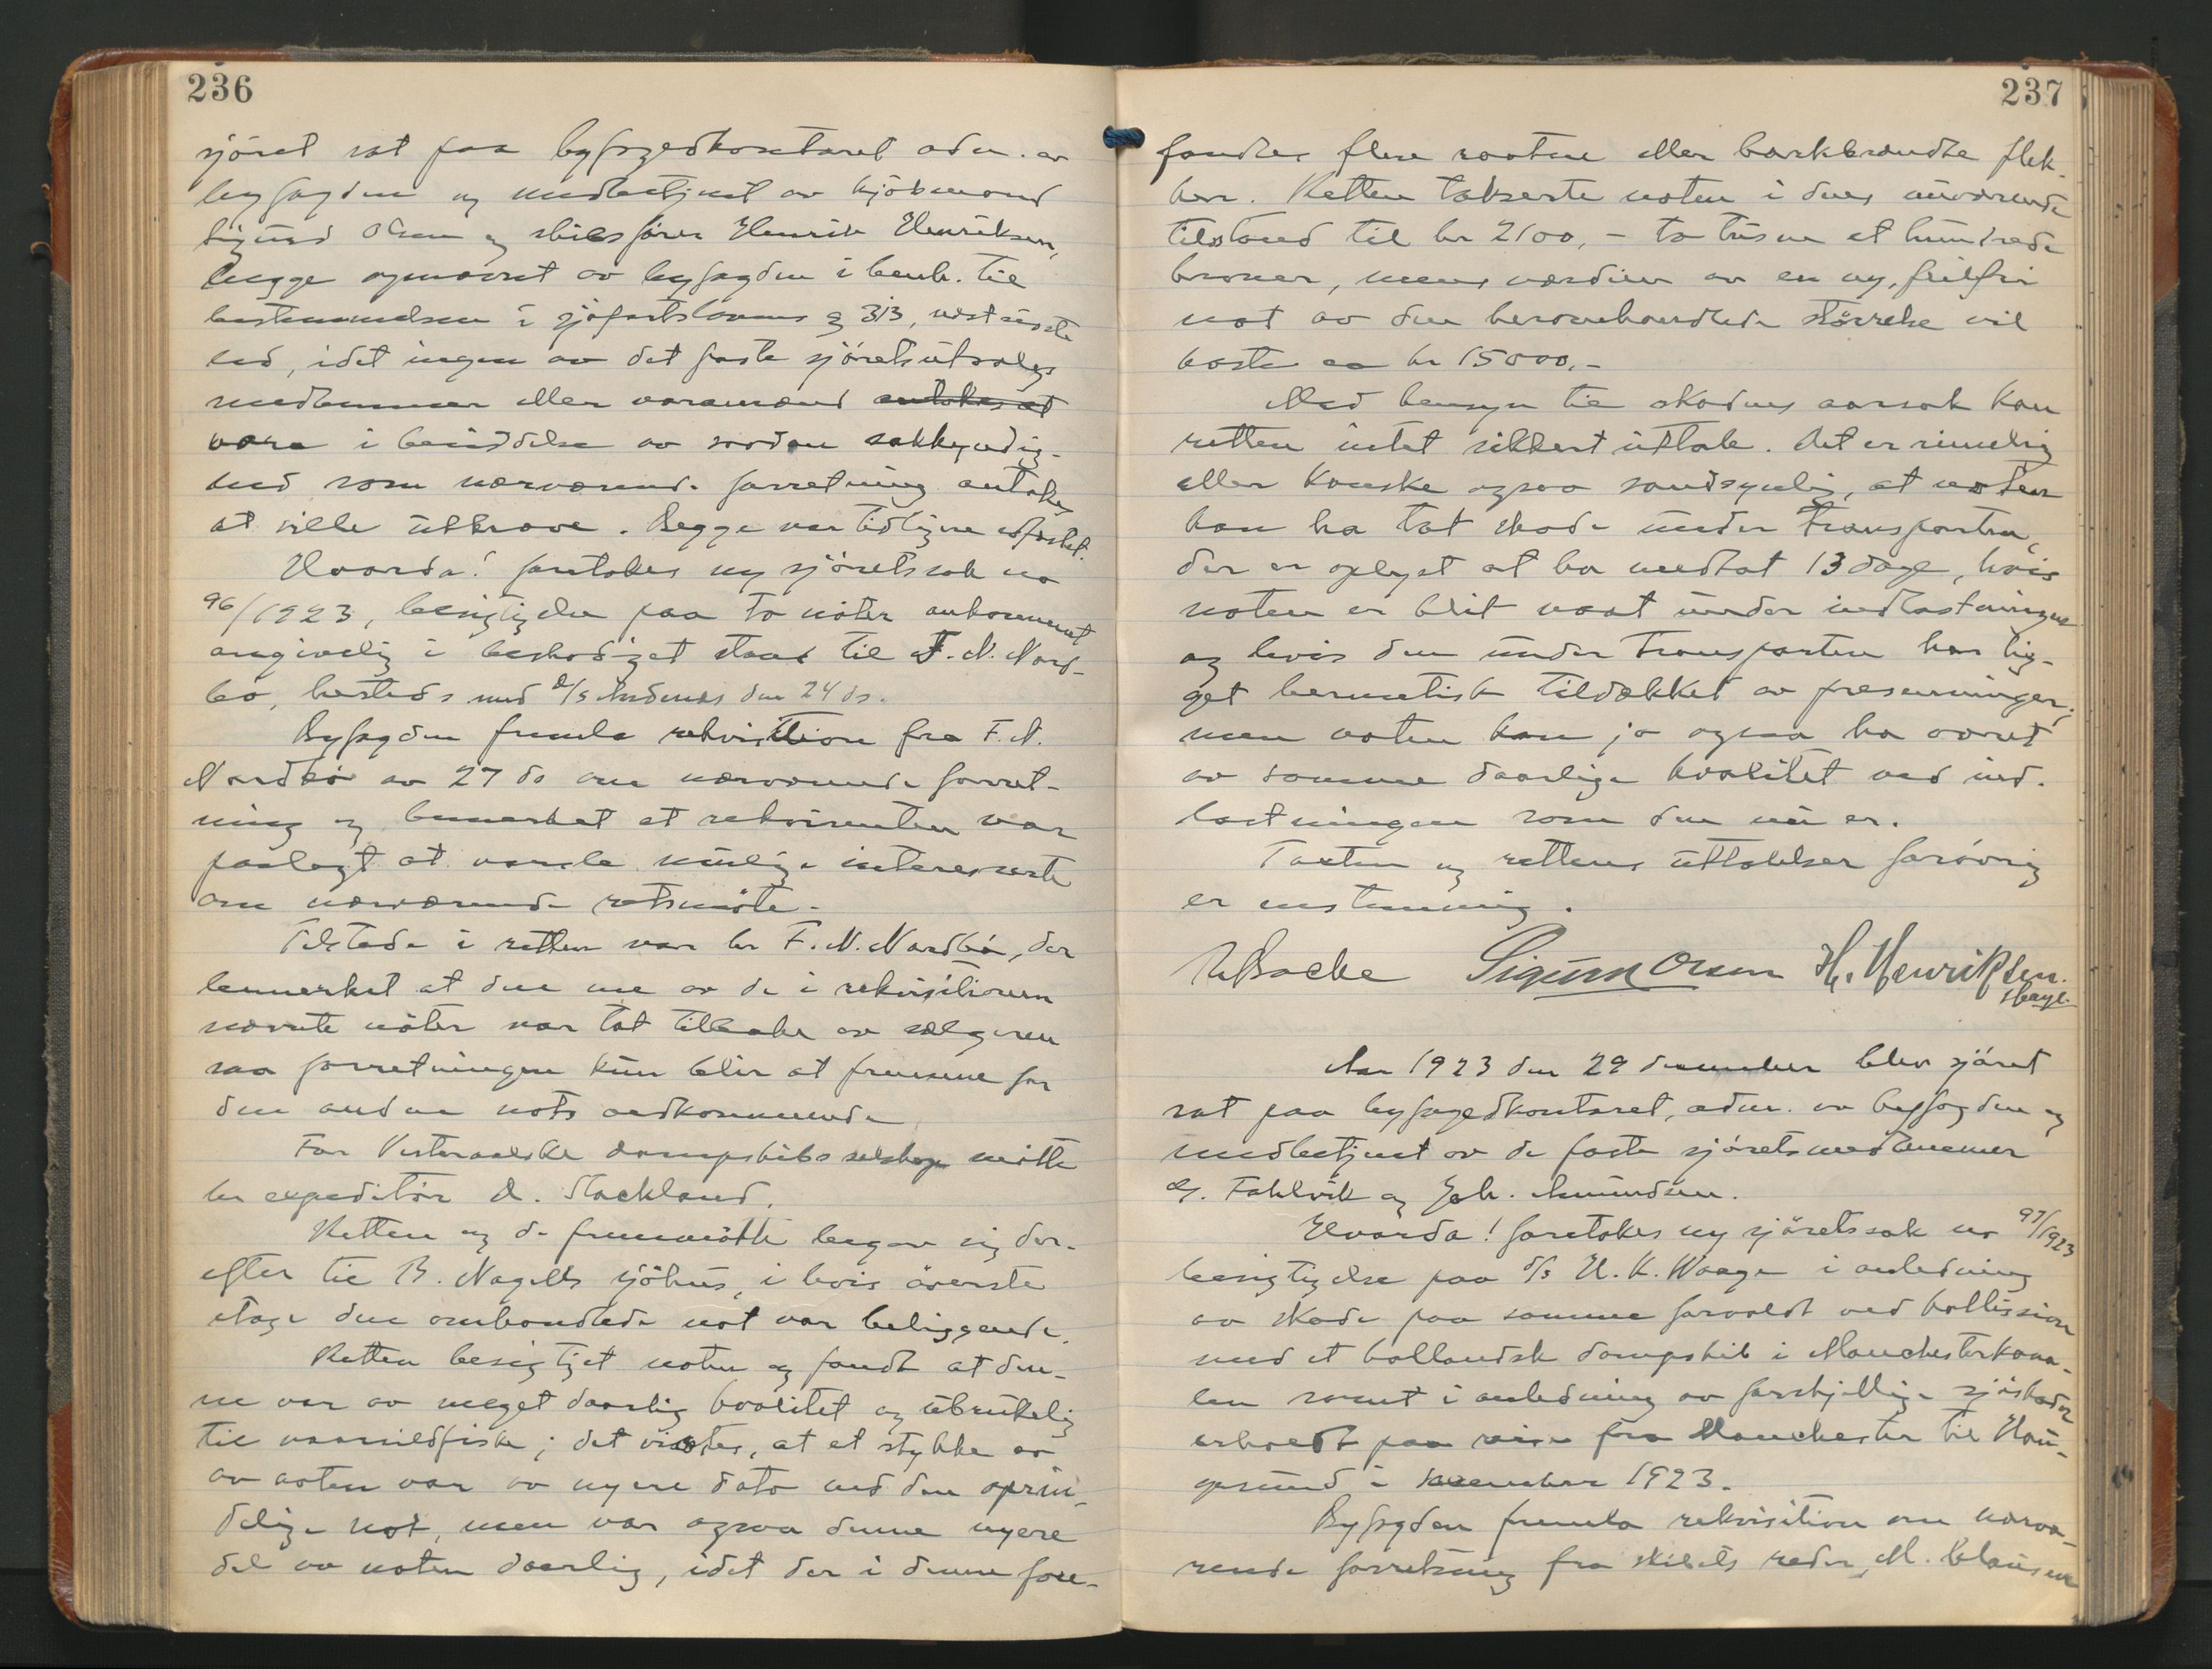 236
sjöret sat paa byfogedkontoret adm. av
byfogden og medbetjent av kjöbmand
Sigurd Olsen og skibsförer Henrik Henriksen,
begge opnævnt av byfogden i henh. til
bestemmelsen i sjöfartslovens § 313, næstsidste
led, idet ingen av det faste sjöretsutvalgs
medlemmer eller varamænd antokes at
være i besiddelse av saadan sakkyndig-
hed som nærværende forretning antokes
at ville utkræve. Begge var tidligere edfæstet.
Hvorda! foretokes ny sjöretssak no
96/1923, besigtigelse paa to nöter ankommet
angivelig i beskadiget stand til F. N. Nord-
bö, hersteds med D/S Andenes den 24 ds.
Byfogden fremla rekvisition fra F. N.
Nordbö av 27 ds om nærværende forret-
ning og bemerket at rekvirenten var
paalagt at varsle mulige interesserte
om nærværende retsmöte.
Tilstede i retten var hr F. N. Nordbö, der
bemerket at den ene av de i rekvisitionen
nævnte nöter var tat tilbake av sælgeren
saa forretningen kun blir at fremme for
den anden nots vedkommende
For Vesteraalske dampskibsselskap mötte
hr expeditör D. Stockland.
Retten og de fremmötte begav sig der-
efter til B. Nagells sjöhus, i hvis överste
etage den omhandlede not var beliggende.
Retten besigtiget noten og fandt at den-
ne var av meget daarlig kvalitet og ubrukelig
til vaarsildfiske; det vistes, at et stykke av
av noten var av nyere dato end den oprin-
delige not, men var ogsaa denne nyere
del av noten daarlig, idet der i denne fore-
237
fandtes flere raatne eller barkbrændte flek-
ker. Retten takserte noten i dens nuværende
tilstand til kr 2100,- to tusen et hundrede
kroner, mens værdien av en ny, feilfri
not av den heromhandlede större­lse vil
koste ca kr 15000.-
Med hensyn til skadens aarsak kan
retten intet sikkert uttale. Det er rimelig
eller kanske ogsaa sandsynlig, at noten
kan ha tat skade under transporten,
der er oplyst at ha medtat 13 dage, hvis
noten er blit vaat under indlastningen
og hvis den under transporten har lig-
get hermetisk tildækket av presenninger;
men noten kan jo ogsaa ha været
av samme daarlige kvalitet ved ind-
lastningen som den nu er.
Taxten og rettens uttalelser forövrig
er enstemmig.
Sigurd Olsen H. Henriksen.
Aar 1923 den 29 december blev sjöret
sat paa byfogedkontoret, adm. av byfogden og
medbetjent av de faste sjöretsmedlemmer
G. Fahlvik og Joh. Amundsen.
Hvorda! foretokes ny sjöretssak no 97/1923
besigtigelse paa S/S H. K. Waage i anledning
av skade paa samme forvoldt ved kollission
med et hollandsk dampskib i Manchesterkana-
len samt i anledning av forskjellige sjöskader
erholdt paa reise fra Manchester til Hau-
gesund i november 1923.
Byfogden fremla rekvisition om nærvæ-
rende forretning fra skibets reder, M. Clausen